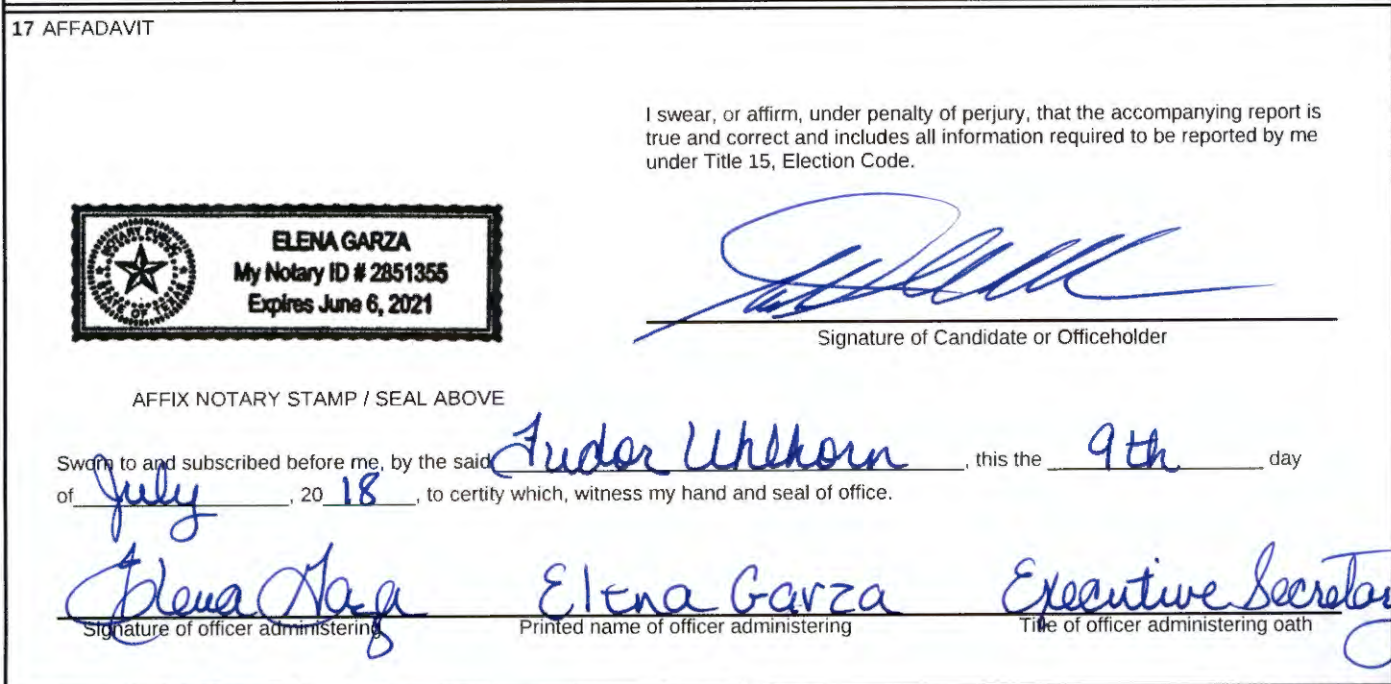 17 AFFADAVIT
I swear, or affirm, under penalty of perjury, that the accompanying report is
true and correct and includes all information required to be reported by me
under Title 15, Election Code.
NOTARY PUBLIC
STATE OF TEXAS
ELENA GARZA
My Notary ID # 2851355
Expires June 6, 2021
Signature of Candidate or Officeholder
AFFIX NOTARY STAMP / SEAL ABOVE
Sworn to and subscribed before me, by the said Tudor Uhlhorn, this the 9th day
of July, 20 18, to certify which, witness my hand and seal of office.
Elena Garza Elena Garza Executive Secretary
Signature of officer administering Printed name of officer administering Title of officer administering oath